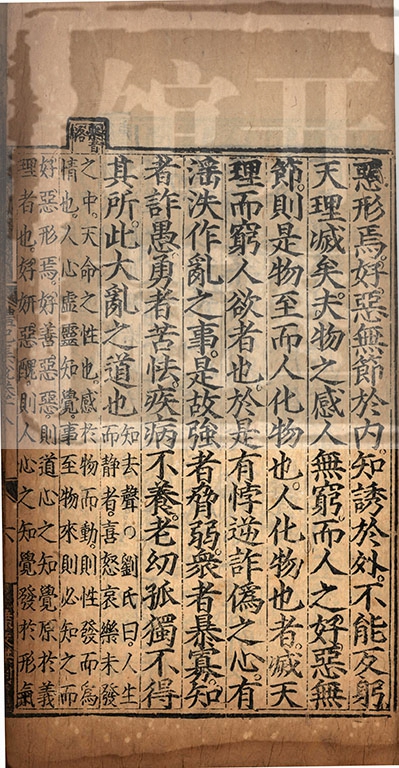 惡形焉。好惡無節於内。知誘於外。不能反躬。
天理滅矣。夫物之感人無窮。而人之好惡無
節。則是物至而人化物也。人化物也者。滅天
理而窮人欲者也。於是有悖逆詐僞之心。有
滛泆作亂之事。是故強者脅弱。衆者暴寡。知
者詐愚。勇者苦怯。疾病不養。老幼孤獨不得
其所。此大亂之道也
知去聲○劉氏曰。人生
而静者。喜怒哀樂未發
之中。天命之性也。感於物而動。則性發而爲
情也。人心虛靈知覺。事至物來。則必知之。而
好惡形焉。好善惡惡。則道心之知覺。原於義
理者也。好妍惡醜。則人心之知覺。發於形氣
樂書